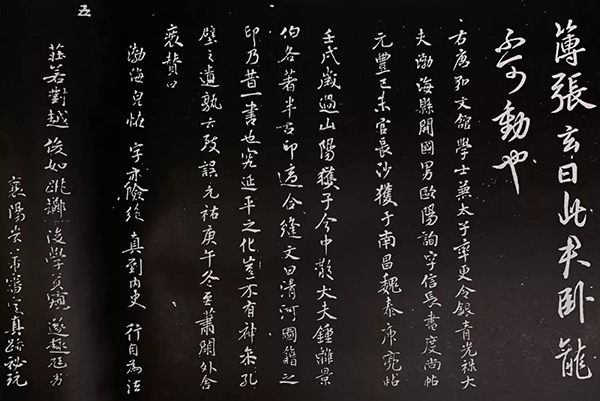 薄張玄曰此君臥龍
不可動也
右唐弘文館學士兼太子率更令銀青光祿大
夫渤海縣開國男歐陽詢字信本書度尚帖
元豐己未官長沙獲于南昌魏泰庾亮帖
壬戌歲過山陽獲于今中散大夫鍾離景
伯各著半古印適合縫文曰清河圖籍之
印乃昔一書也宛延平之化豈不有神柰孔
壁之遺孰亦攷誤元祐庚午冬至蕭閑外舍
裒贊曰
渤海光怪 字亦險絕 真到內史 行自爲法
莊若對越 俊如跳擲 後學莫窺 遂趨尫劣
襄陽米芾審定真跡秘玩
五